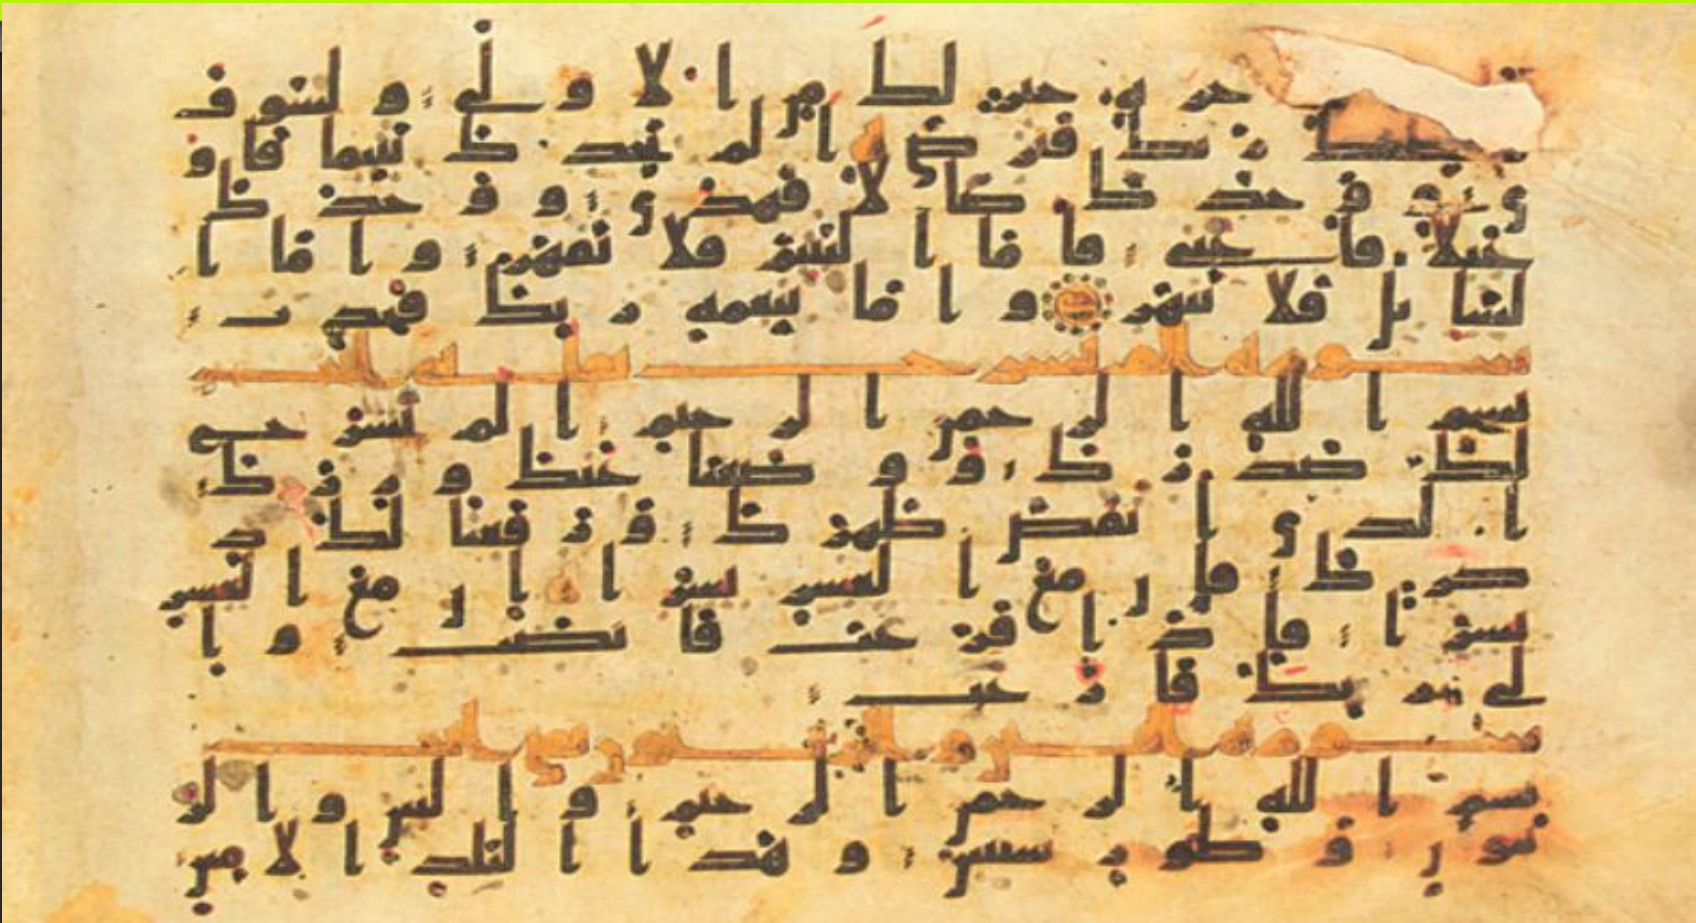 خرة خير لك من الاولى ولسوف
يعطيك ربك فترضى الم يجدك يتيما فاو
ى ووجدك ضالا فهدى ووجدك
عيلا فاغنى فاما اليتيم فلا تقهر واما ا
لسايل فلا تنهر واما بنعمه ربك فحدث
سوره الم نشرح
بسم الله الرحمن الرحيم الم نشرح
لك صدرك ووضعنا عنك وزرك
الذى انقض ظهرك ورفعنا لك ذ
كرك فان مع العسر يسرا ان مع العسر
يسرا فاذا فرغت فانصب وا
لى ربك فارغب
سوره التين والزيتون
بسم الله الرحمن الرحيم والتين والز
يتون وطور سينين وهذا البلد الامين